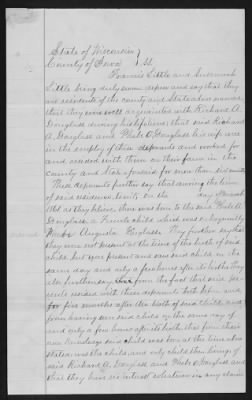 State of Wisconsin }
County of Iowa } SS.
Francis Little and Susannah
Little being duly sworn depose and say that they
are residents of the county and State above named
that they were well acquainted with Richard A.
Douglass during his lifetime; that said Richard
A. Douglass and Phebe A. Douglass his wife were
in the employ of these deponents and worked for
and resided with them on their farm in the
county and State aforesaid for more than six months
These deponents further say that during the time
of said residence to wit: on the day of
1861 as they believe, there was born to the said Phebe A
Douglass, a Female child which was subsequently
Augusta Douglass They further say that
they were not present at the time of the birth of said
child, but were present and saw said child on the
same day and only a few hours after its birth; they
also further say, that from the fact that said
resided with these deponents both before and
for five months after the birth of said child and
from having seen said child on the same day of
and only a few hours after its birth, that from their
own knowledge said child was born at the time above
stated, was the child and only child then living of
said Richard A. Douglass and Phebe A. Douglass and
that they have no interest whatever in any claim